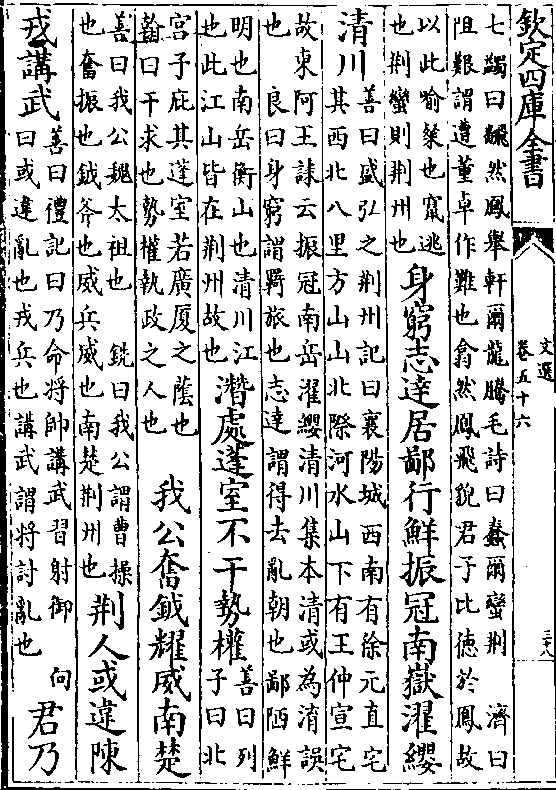 欽定四庫全書
文選
卷五十六
七蠲曰飜然鳳舉軒爾龍騰毛詩曰蠢爾蠻荆 濟曰
阻艱謂遭董卓作難也翕然鳳飛貌君子比德於鳳故
以此喻粲也竄逃
也荆蠻則荆州也
身窮志達居鄙行鮮振冠南嶽濯纓
清川
善曰盛弘之荆州記曰襄陽城西南有徐元直宅
其西北八里方山山北際河水山下有王仲宣宅
故東阿王誄云振冠南岳濯纓清川集本清或為淯誤
也 良曰身窮謂羇旅也志達謂得去亂朝也鄙陋鮮
明也南岳衡山也清川江
也此江山皆在荆州故也
潛處蓬室不干勢權
善曰列
子曰北
宫子庇其蓬室若廣厦之蔭也
翰曰干求也勢權執政之人也
我公奮鉞耀威南楚
善曰我公魏太祖也 銑曰我公謂曹操
也奮振也鉞斧也威兵威也南楚荆州也
荆人或違陳
戎講武
善曰禮記曰乃命將帥講武習射御 向
曰或違亂也戎兵也講武謂將討亂也
君乃